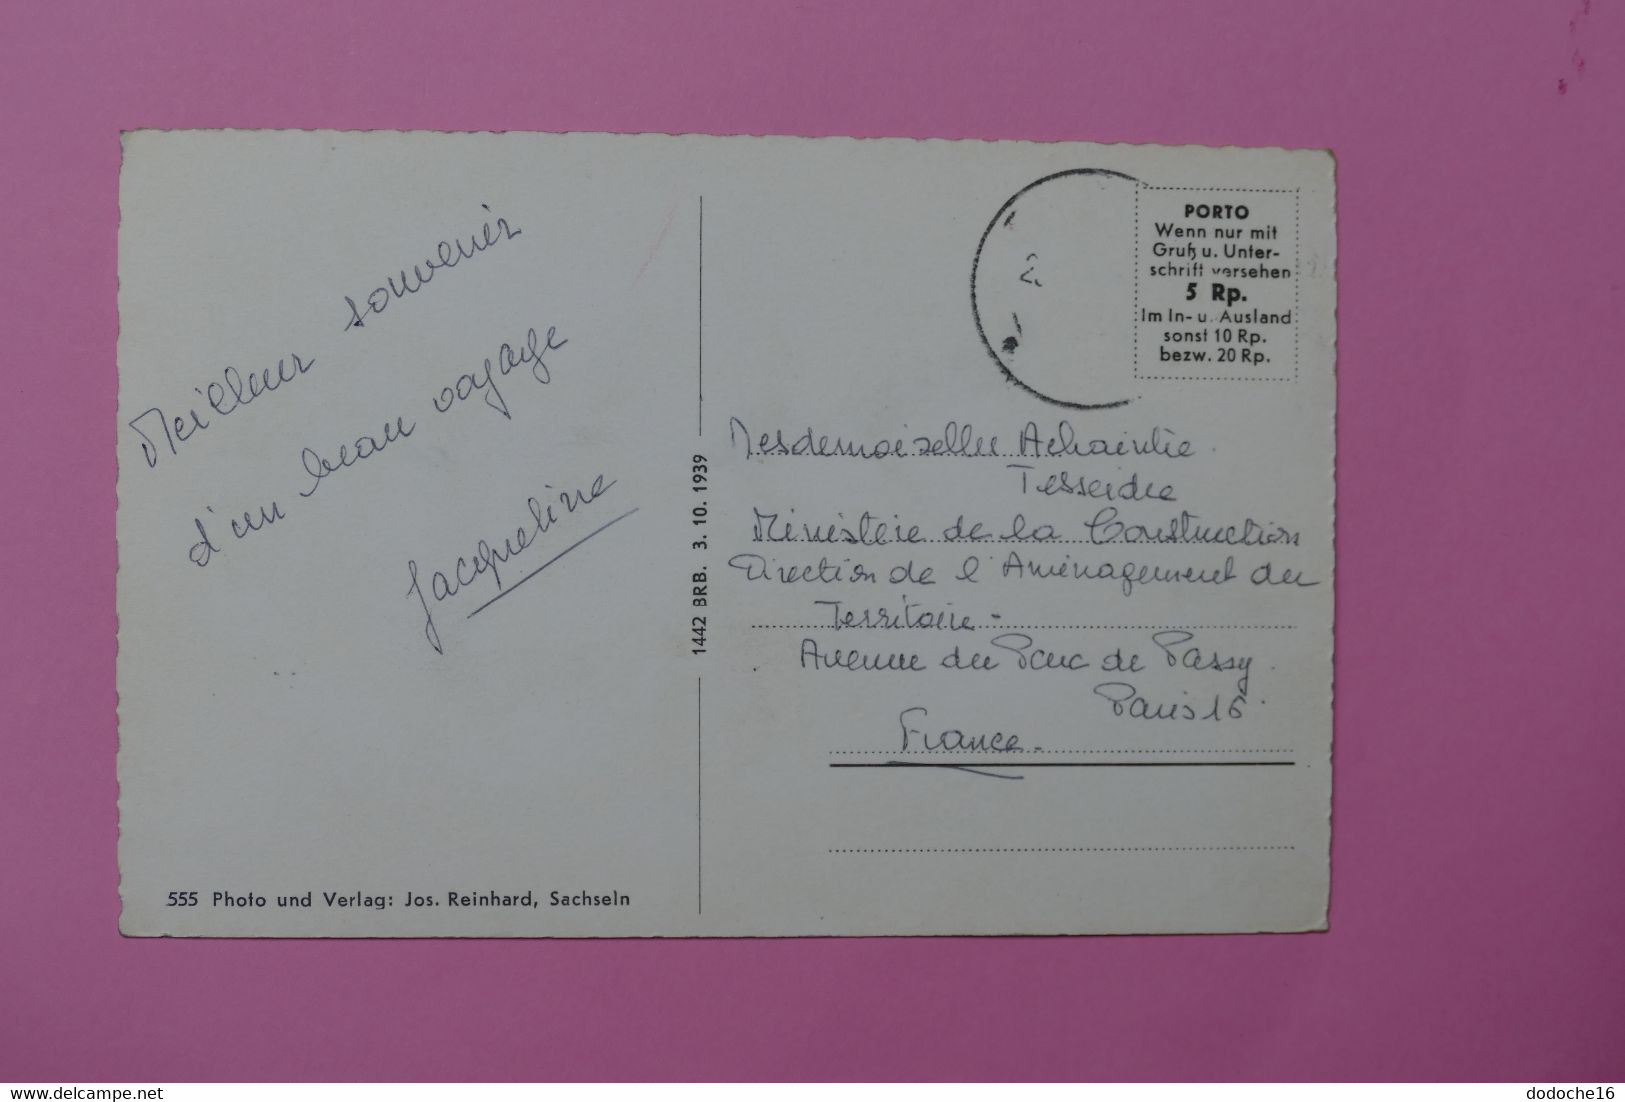 Meilleur souvenir
d'un beau voyage
Jacqueline
555 Photo und Verlag: Jos. Reinhard, Sachseln
1442 BRB. 3. 10. 1939
PORTO
Wenn nur mit
Gruß u. Unter-
schrift versehen
5 Rp.
Im In- u. Ausland
sonst 10 Rp.
bezw. 20 Rp.
Mesdemoiselles Achaintre
Tesseidre
Ministère de la Construction
Direction de l'Aménagement du
Territoire -
Avenue du Parc de Passy
Paris 16
France -
delcampe.net
dodoche16